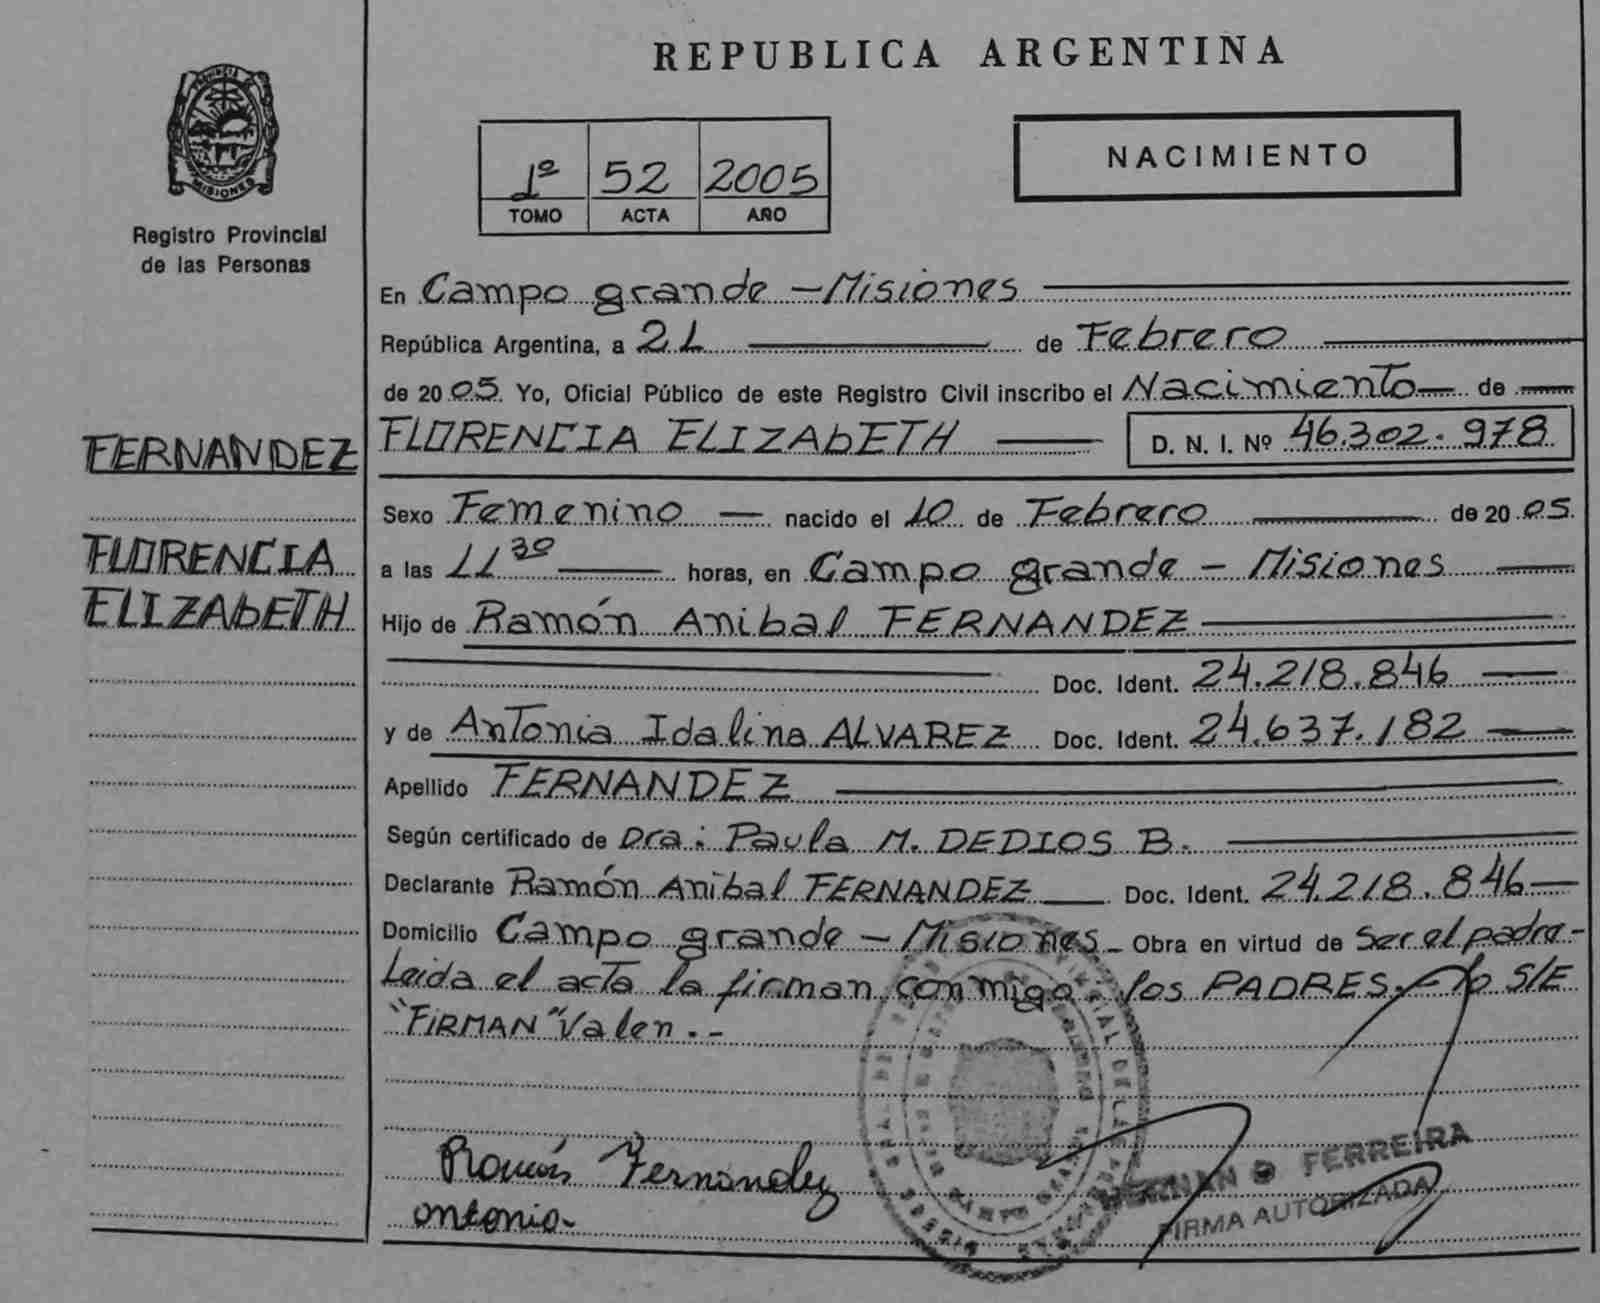 REPUBLICA ARGENTINA
PROVINCIA DE
MISIONES
Registro Provincial
de las Personas
1º 52 2005
TOMO ACTA AÑO
NACIMIENTO
En Campo grande - Misiones
República Argentina, a 21 de Febrero
de 2005. Yo, Oficial Público de este Registro Civil inscribo el Nacimiento de
FLORENCIA ELIZAbETH D. N. I. Nº 46.302.978
FERNANDEZ
Sexo Femenino nacido el 10 de Febrero de 2005.
FLORENCIA
a las 11 30 horas, en Campo grande - Misiones
ELIZAbETH
Hijo de Ramón Anibal FERNANDEZ
Doc. Ident. 24.218.846
y de Antonia Idalina ALVAREZ Doc. Ident. 24.637.182
Apellido FERNANDEZ
Según certificado de Dra: Paula M. DEDIOS B.
Declarante Ramón Anibal FERNANDEZ Doc. Ident. 24.218.846
Domicilio Campo grande - Misiones Obra en virtud de Ser el padre-
Leida el acta la firman conmigo: los PADRES.- lo S/E
"FIRMAN" Valen.-
Ramón Fernandez
antonia
FERREIRA
FIRMA AUTORIZADA